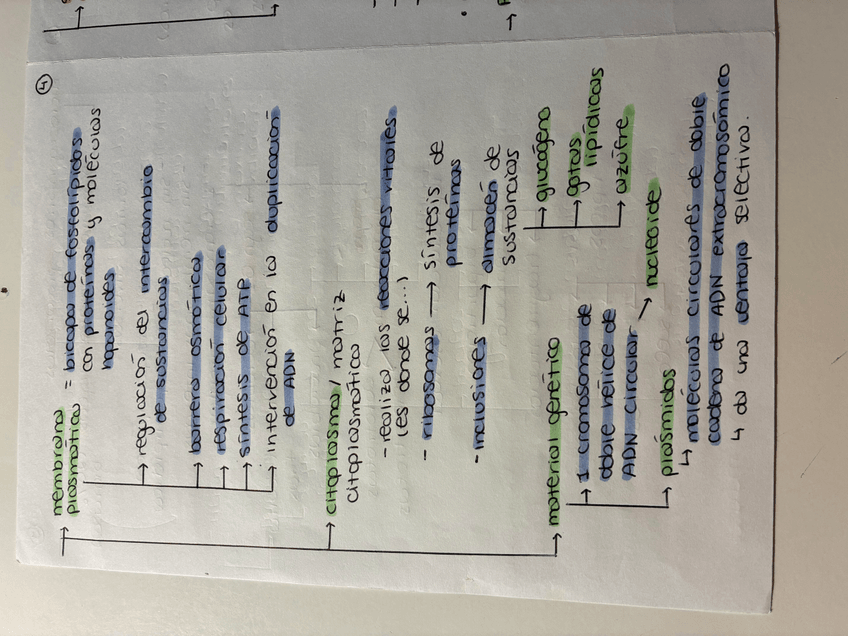 ④
membrana
plasmática = bicapa de fosfolípidos
con proteínas y moléculas
hopanoides
→ regulación del intercambio
de sustancias
→ barrera osmótica
→ respiración celular
→ síntesis de ATP
→ intervención en la duplicación
de ADN
→ citoplasma / matriz
citoplasmática
- realiza las reacciones vitales
(es donde se...)
- ribosomas → síntesis de
proteínas
- inclusiones → almacén de
sustancias
→ glucógeno
→ gotas
lipídicas
→ azufre
→ material genético
→ 1 cromosoma de
doble hélice de
ADN circular → nucleoide
→ plásmidos
↳ moléculas circulares de doble
cadena de ADN extracromosómico
↳ da una ventaja selectiva.